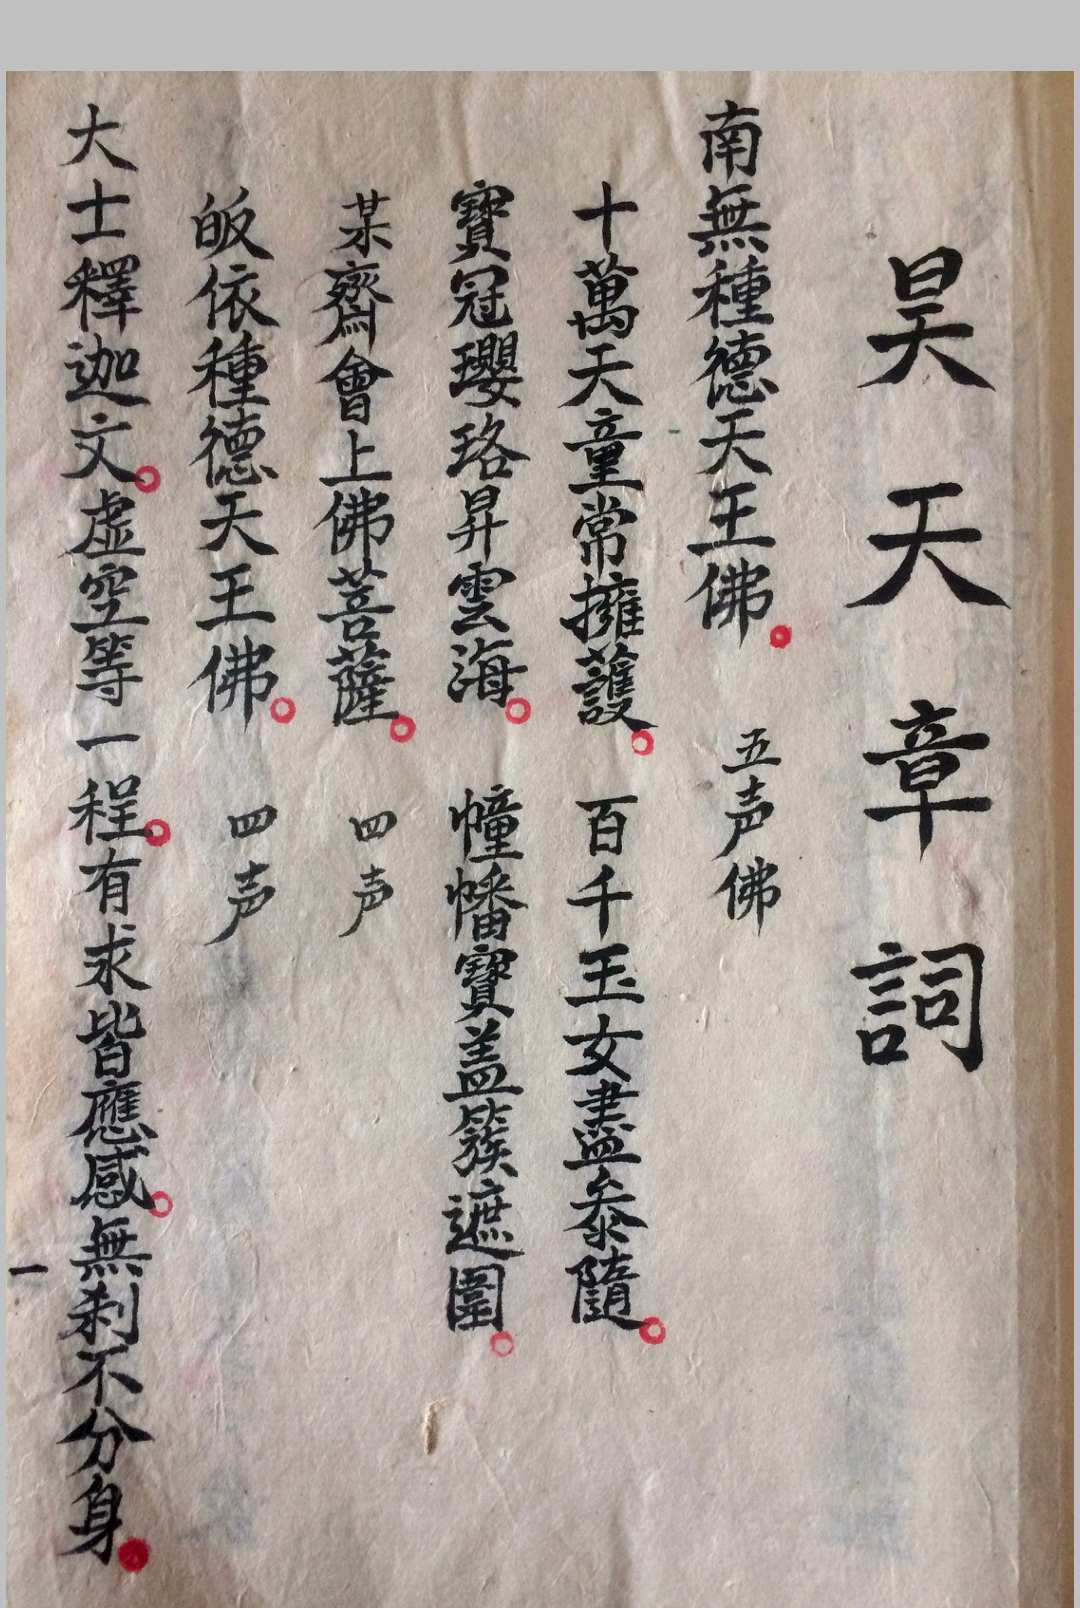 昊天章詞
南無種德天王佛。 五声佛
十萬天童常擁護。 百千玉女盡叅隨。
寶冠瓔珞昇雲海。 幢幡寶盖簇遮圍。
某齋會上佛菩薩。 四声
皈依種德天王佛。 四声
大士釋迦文。虛空等一程。有求皆應感。無刹不分身。
一